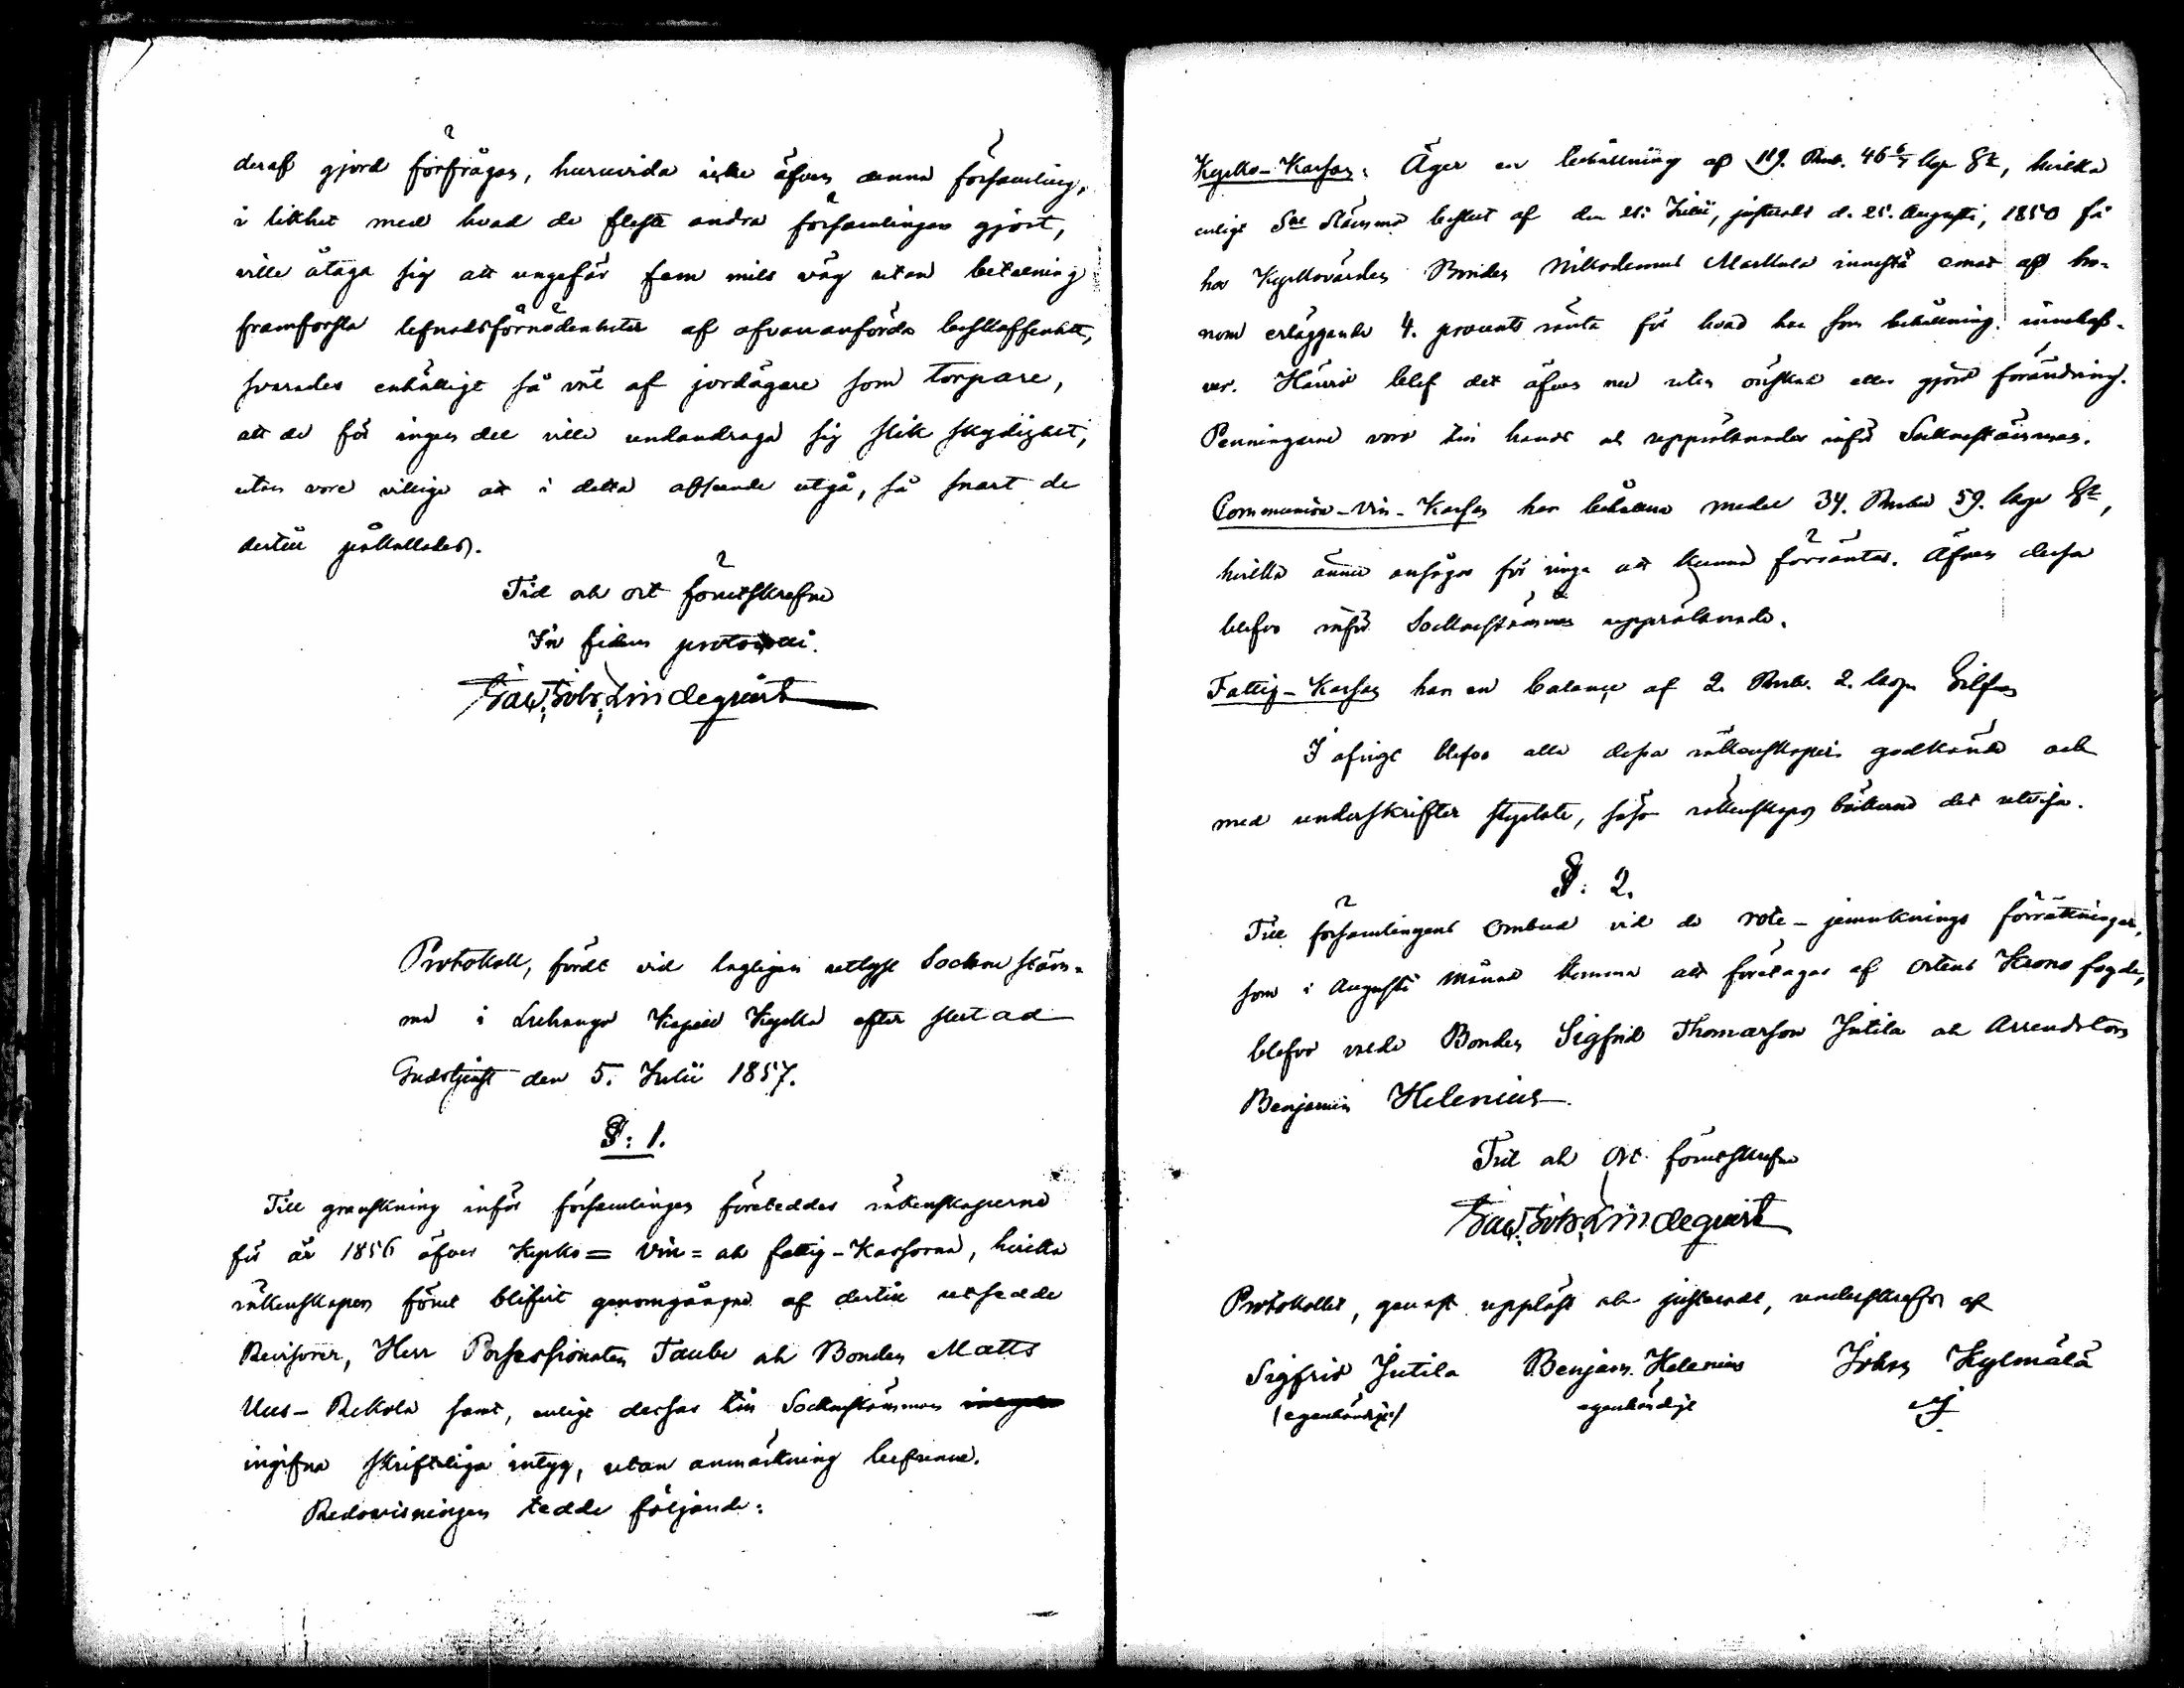 deraf gjord förfrågan, huruvida icke äfven denna församling,
i likhet med hvad de flesta andra församlingar gjort,
ville åtaga sig att ungefär fem mils väg utan betalning
framforsla lefnadsförnödenheter af ofvananförda beskaffenhet,
svarades enhälligt så väl af jordägare som torpare,
att de för ingen del ville undandraga sig slik skyldighet,
utan vore villige att i detta afseende utgå, så snart de
dertill påkallades.
Tid och ort förutskrefne
In fidem protocolli.
Gav. Joh. Lindeqvist
Protokoll, fördt vid lagligen utlyst Sockne stäm-
ma i Luhango Kapell Kyrka efter slutad
Gudstjenst den 5. Julii 1857.
§: 1.
Till granskning inför församlingen företeddes räkenskaperne
för år 1856 öfver Kyrko= Vin= och fattig-Kassorna, hvilka
räkenskaper förut blifvit genomgångne af dertill utsedde
Revisorer, Herr Possessionaten Taube och Bonden Matts
Uus-Rekola samt, enligt desses till Sockenstämman
ingifna skriftliga intyg, utan anmärkning befunne.
Redovisningen tedde följande:
Kyrko-Kassan: Äger en behållning af 119. Rub. 46 6/7 kop Sr, hvilka
enligt Sne Stämmo beslut af den 21: Julii, justeradt d. 25. Augusti, 1850 få
hos Kyrkovärden Bonden Nikodemus Markkula innestå emot af ho-
nom erläggande 4. procents ränta för hvad han som behållning innehaf-
ver. Häuri blef det äfven nu utan önskad eller gjord förändring.
Penningarne voro till hands och uppräknades inför Socknestämman.
Communion-Vin-Kassan har behållna medel 34. Rubel 59. kop Sr,
hvilka ännu ansågos för ringa att kunna förräntas. Äfven dessa
blefvo inför Socknestämman uppräknade.
Fattig-Kassan har en balance af 2. Rub. 2. kop. Silfver
I öfrigt blefvo alla dessa räkenskaper godkända och
med underskrifter styrkte, såsom räkenskaps böckerne det utvisa.
§: 2.
Till församlingens Ombud vid de rote-jemknings förrättningar,
som i Augusti månad komma att företagas af ortens Krono fogde,
blefvo valde Bonden Sigfrid Thomasson Jutila och Arrendatorn
Benjamin Helenius.
Tid och Ort förutskrefne
Gav. Joh. Lindeqvist
Protokollet, genast uppläst och justeradt, underskrefvs af
Sigfrid Jutila Benjam. Helenius Johan Kylmälä
(egenhändigt) egenhändigt